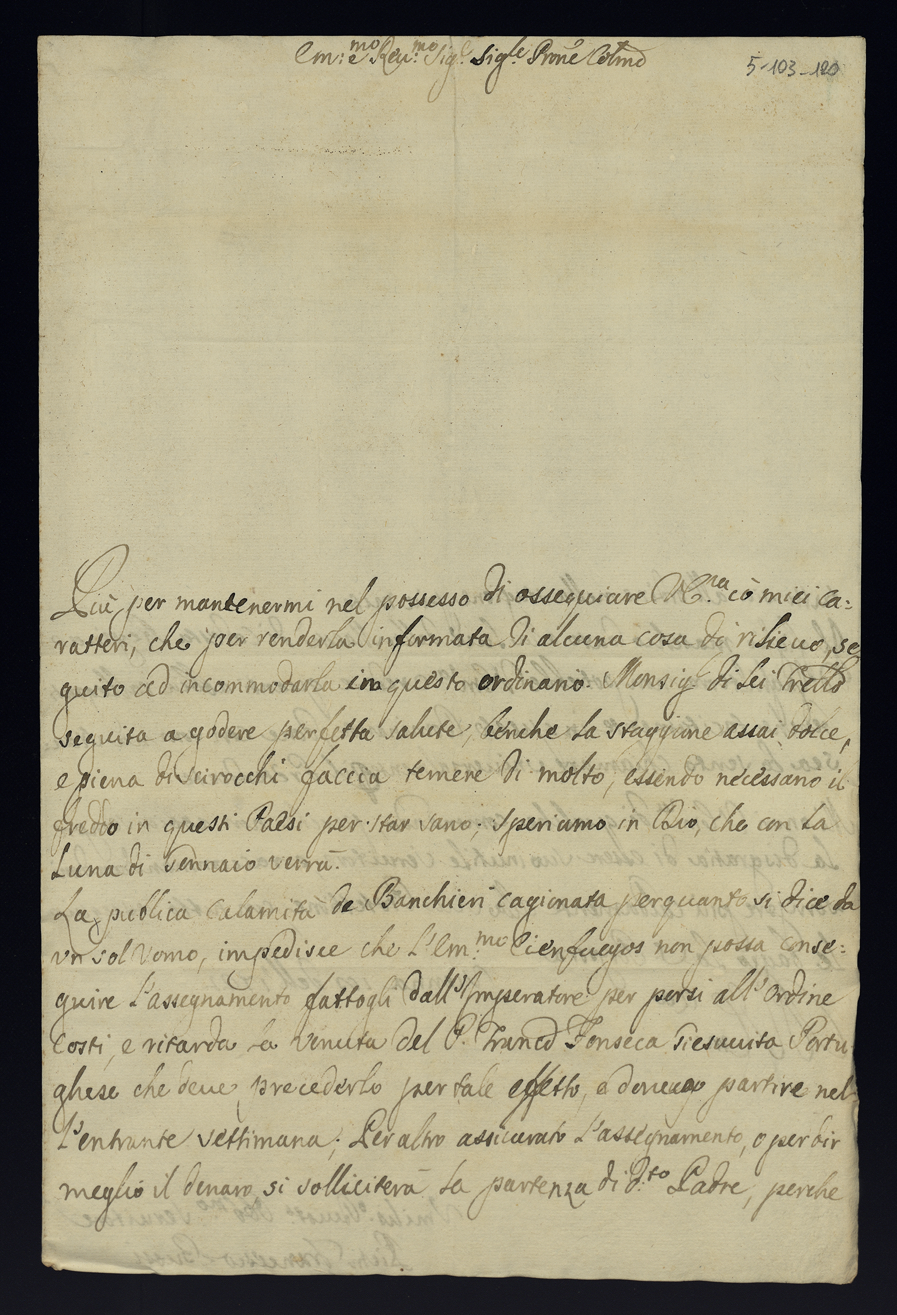 Em:mo e Reu:mo Sig.r Sig.re Prone Colmo
5-103-120
Più per mantenermi nel possesso di ossequiare V. Em.na cò miei ca:
ratteri, che per renderla informata di alcuna cosa di rilieuo, se
guito ad incommodarla in questo ordinario. Monsig.r di lei Frello
seguita a godere perfetta salute, benche la staggione assai dolce,
e piena di Scirocchi faccia temere di molto, essendo necessario il
freddo in questi Paesi per star sano. Speriamo in Dio, che con la
Luna di Gennaio verrà.
La publica calamità de Banchieri cagionata perquanto si dice da
vn sol Vomo, impedisce che l'Em:mo Cienfuegos non possa conse:
guire l'assegnamento fattogli dall'Imperatore per porsi all'ordine
costì, e ritarda la venuta del P. Franco Fonseca Giesuuita Portu
ghese che deue precederlo per tale effetto, e doueua partire nel
l'entrante settimana; Per altro assicurato l'assegnamento, o per dir
meglio il denaro, si solliciterà la partenza di d.to Padre, perche